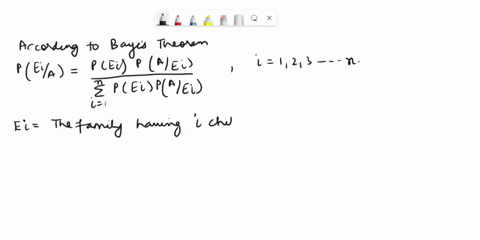 According to Bayis Theorem
P(Ei/A) = P(Ei) P(A/Ei) / n∑i=1 P(Ei)P(A/Ei) , i = 1, 2, 3 ---- n.
Ei = The family having i che